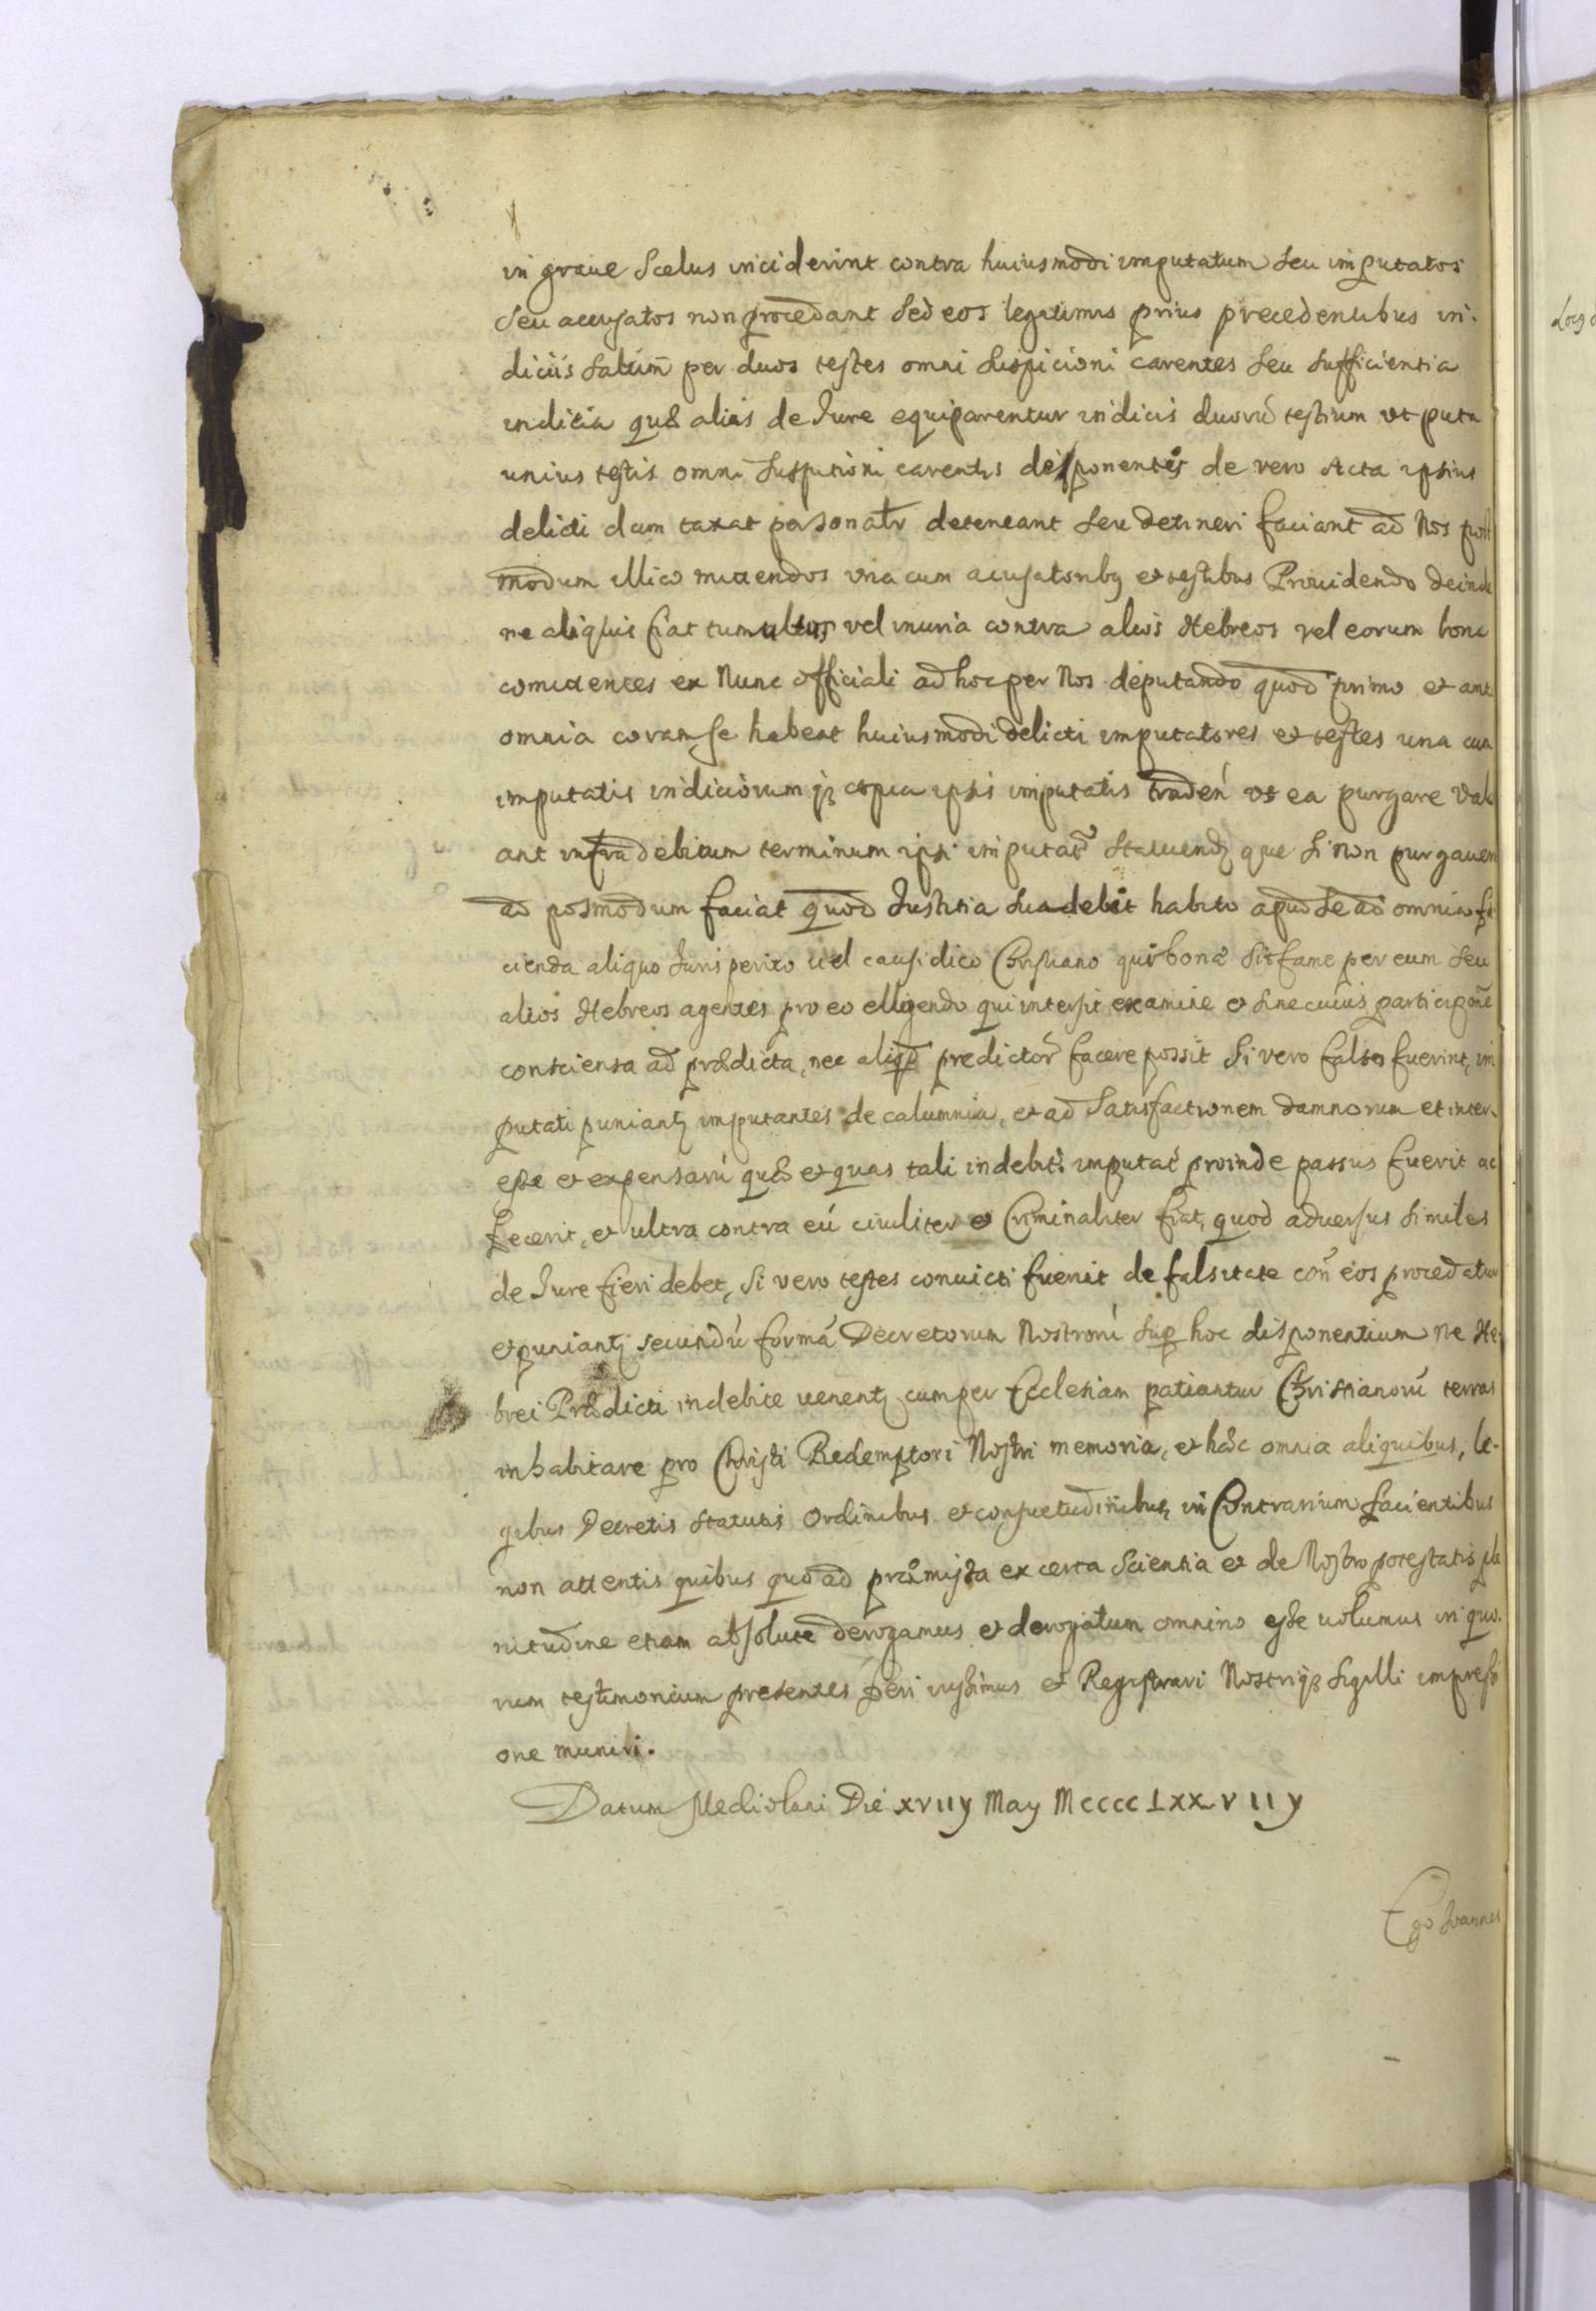 in graue Scelus inciderint contra huiusmodi imputatum seu imputatos
seu accusatos non procedant sed eos legitimis prius precedentibus in-
diciis saltim per duos testes omni suspicioni carentes seu sufficientia
indicia quæ alias de Iure equiparentur indiciis duorú testium vt puta
unius testis omni suspitioni carentis desponentis de vero Acta ipsius
delicti dum taxat personalr deteneant seu detineri faciant ad Nos post
modum illico mittendos vna cum acusatoribq et testibus Prouidendo deinde
ne aliquis fiat tumultus vel iniuria contra alios Hebreos vel eorum bona
comittentes ex Nunc officiali ad hoc per Nos deputando quod primo et ante
omnia coram se habeat huiusmodi delicti imputatores et testes una cum
imputatis indiciorum q3 copia ipsis imputatis tradén vt ea purgare vale
ant infra debitum terminum ipsi imputat statuend que si non purgauer
ad posmodum faciat quod Iustitia suadebit habito apud se ad omnia fa
cienda aliquo Iuris perito uel causidico Christiano qui bonæ sit fame per eum seu
alios Hebreos agentes pro eo elligendo qui intersit examine et sine cuius participõne
conscienta ad prædicta, nec aliqd predictor facere possit si vero falso fuerint, im
putati puniant imputantes de calumnia, et ad satisfactionem damnorum et inter-
esse et expensarú quæ et quas tali indebite imputat proinde passus fuerit ac
fecerit, et ultra contra eú ciuiliter et Criminaliter fiat, quod aduersus similes
de Iure fieri debet, si vero testes conuicti fuerit de falsitate con eos procedatur
et puniant secundú formá Decretorum Nostrorú sup hoc disponentium ne He-
brei Prædicti indebite uexent cum per Ecclesiam patiantur Christianorú terras
inhabitare pro Christi Redemptori Nostri memoria, et hæc omnia aliquibus, le-
gibus Decretis statutis ordinibus et consuetudinibus in Contrarium facientibus
non attentis quibus quo ad præmissa ex certa Scientia et de Nostro potestatis ple
nitudine etiam absolute derogamus et derogatum omnino esse uolumus in quo-
rum testimonium presentes fieri iussimus et Registrari Nostriq3 sigilli impressi
one muniri.
Datum Mediolani Die xviiy May Mcccc Lxxviiy
Ego Ioannes